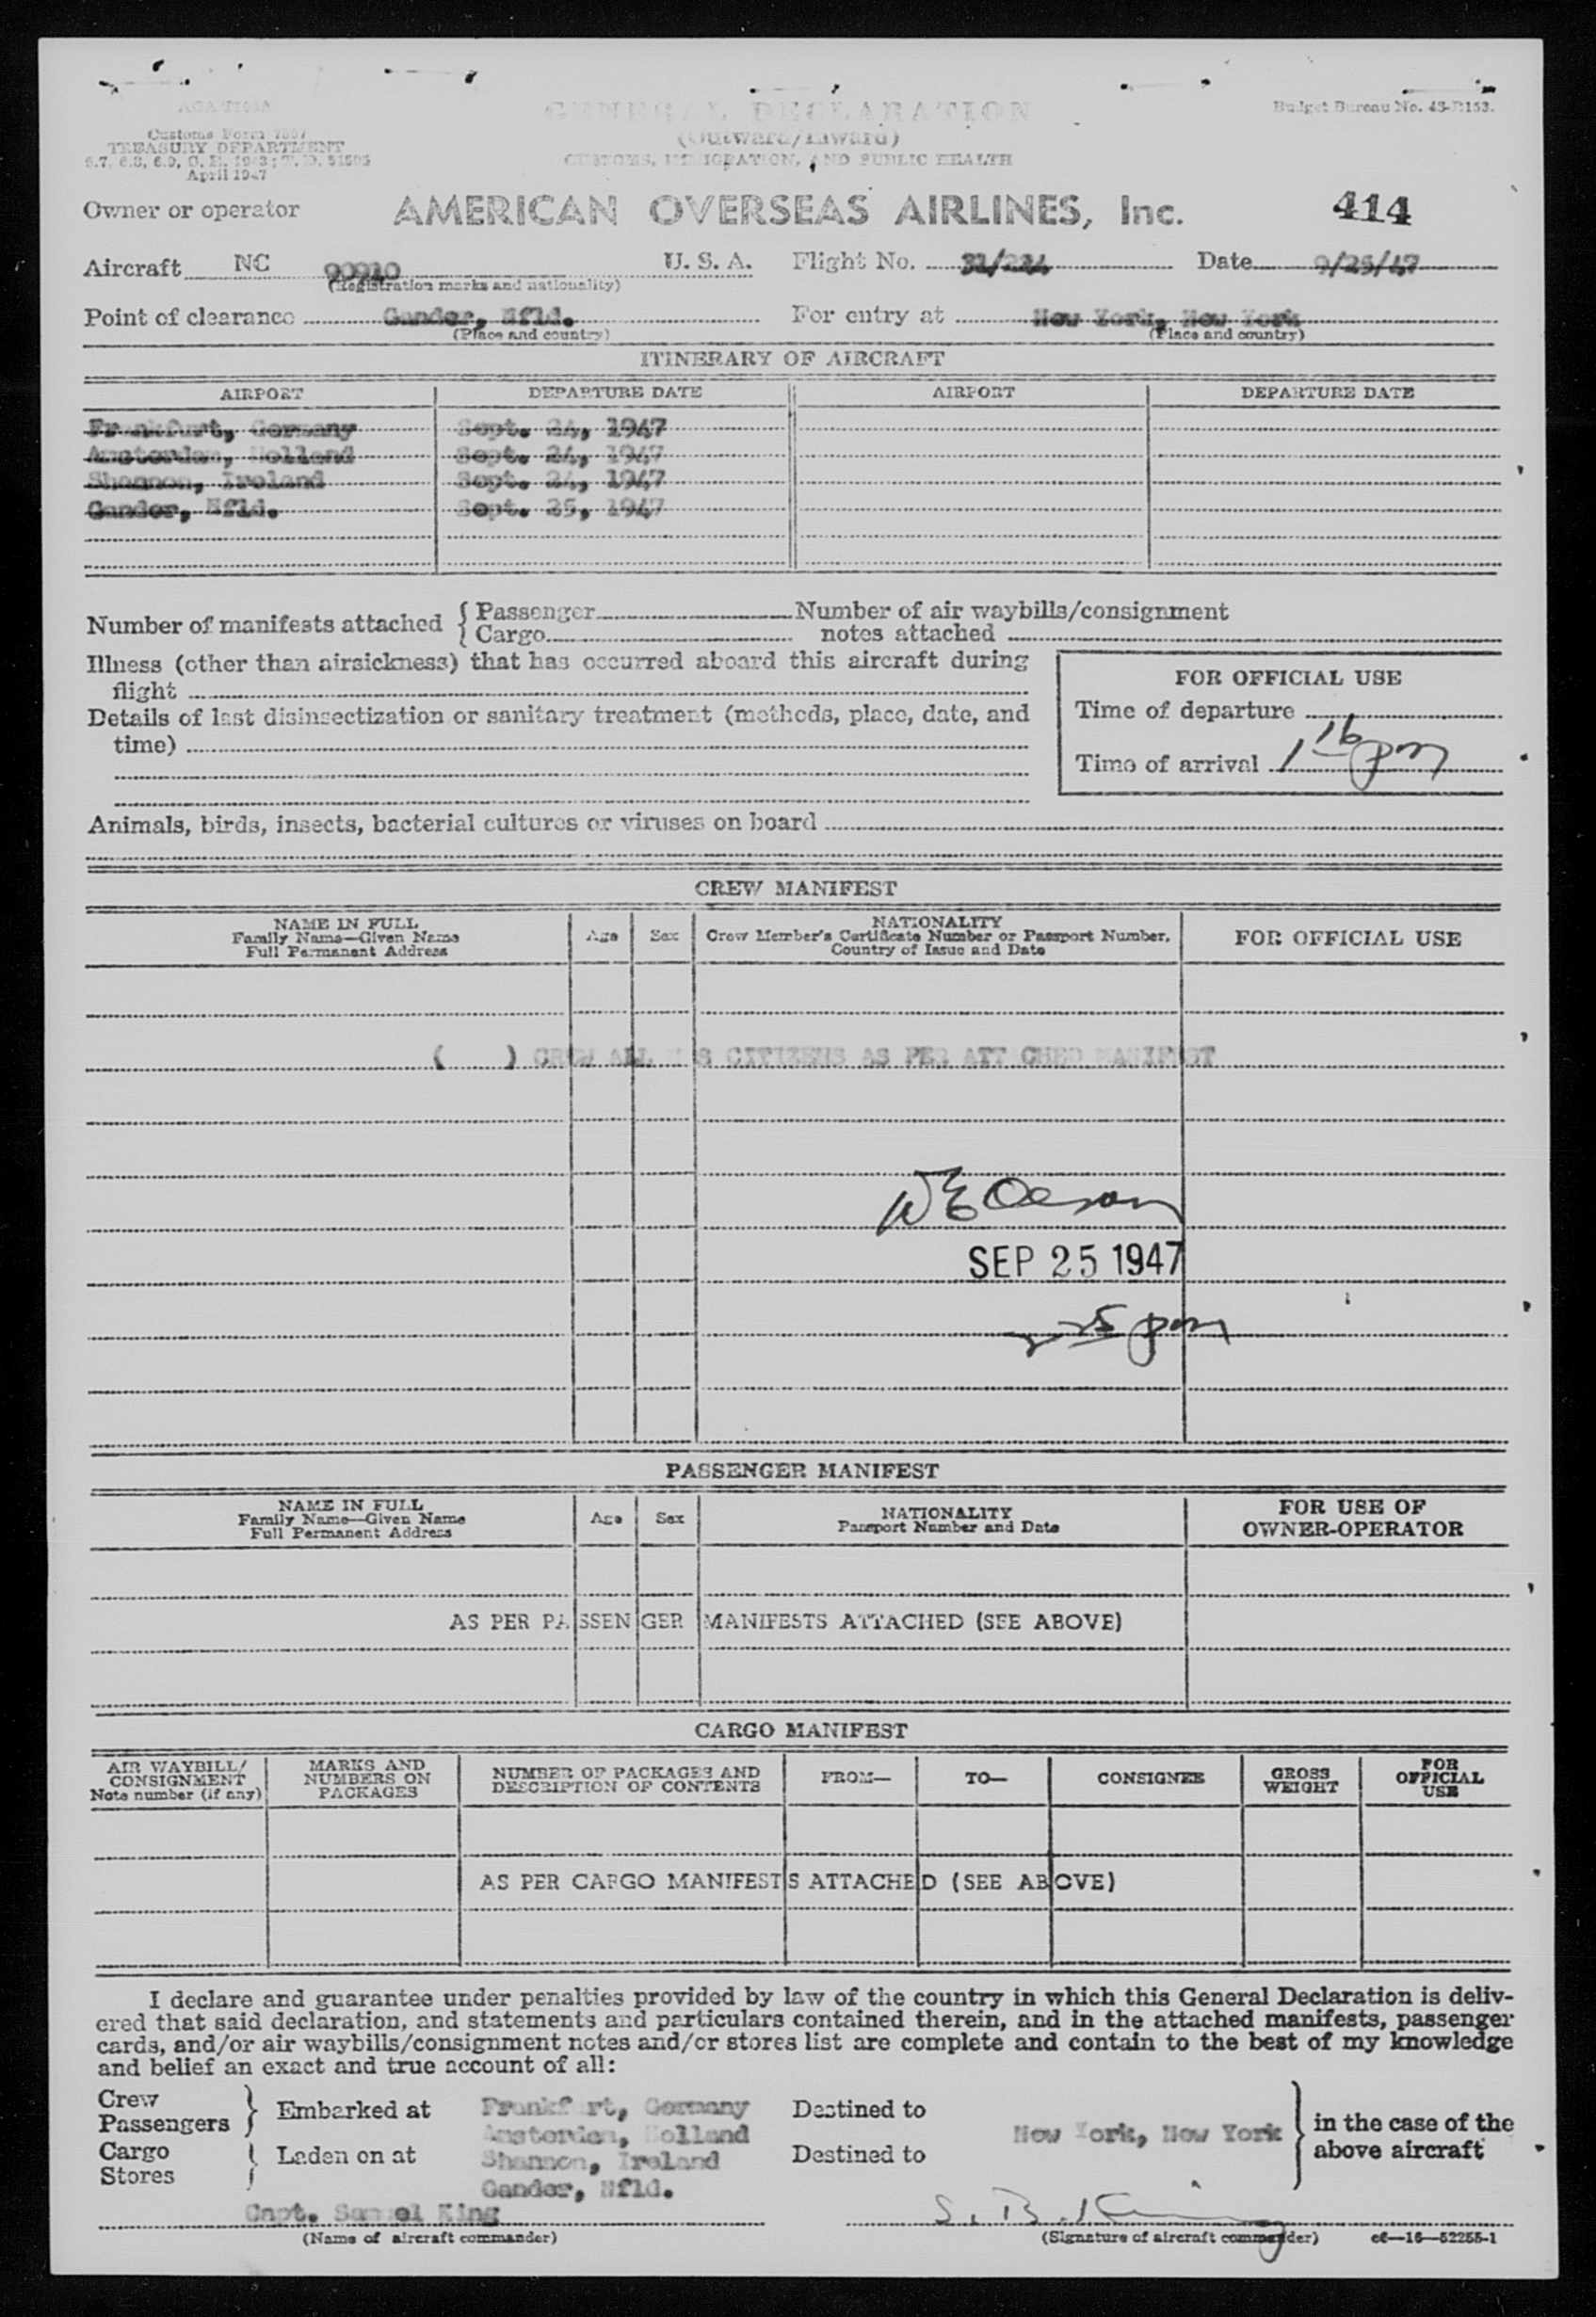 Customs Form 7507
TREASURY DEPARTMENT
April 1947
GENERAL DECLARATION
(Outward/Inward)
CUSTOMS, IMMIGRATION, AND PUBLIC HEALTH
Budget Bureau No. 48-R153.
Owner or operator AMERICAN OVERSEAS AIRLINES, Inc. 414
Aircraft NC 90910 U. S. A. Flight No. Date 9/25/47
(Registration marks and nationality)
Point of clearance Gander, Nfld. For entry at New York, New York
(Place and country) (Place and country)
ITINERARY OF AIRCRAFT
AIRPORT DEPARTURE DATE AIRPORT DEPARTURE DATE
Frankfurt, Germany Sept. 24, 1947
Amsterdam, Holland Sept. 24, 1947
Shannon, Ireland Sept. 24, 1947
Gander, Nfld. Sept. 25, 1947
Number of manifests attached { Passenger Number of air waybills/consignment
Cargo notes attached
Illness (other than airsickness) that has occurred aboard this aircraft during
flight
Details of last disinsectization or sanitary treatment (methods, place, date, and
time)
FOR OFFICIAL USE
Time of departure
Time of arrival 1 16 pm
Animals, birds, insects, bacterial cultures or viruses on board
CREW MANIFEST
NAME IN FULL
Family Name—Given Name
Full Permanent Address
Age
Sex
NATIONALITY
Crew Member's Certificate Number or Passport Number,
Country of Issue and Date
FOR OFFICIAL USE
( ) CREW ALL U S CITIZENS AS PER ATTACHED MANIFEST
SEP 25 1947
2 25 pm
PASSENGER MANIFEST
NAME IN FULL
Family Name—Given Name
Full Permanent Address
Age
Sex
NATIONALITY
Passport Number and Date
FOR USE OF
OWNER-OPERATOR
AS PER PASSENGER MANIFESTS ATTACHED (SEE ABOVE)
CARGO MANIFEST
AIR WAYBILL/
CONSIGNMENT
Note number (if any)
MARKS AND
NUMBERS ON
PACKAGES
NUMBER OF PACKAGES AND
DESCRIPTION OF CONTENTS
FROM—
TO—
CONSIGNEE
GROSS
WEIGHT
FOR
OFFICIAL
USE
AS PER CARGO MANIFESTS ATTACHED (SEE ABOVE)
I declare and guarantee under penalties provided by law of the country in which this General Declaration is deliv-
ered that said declaration, and statements and particulars contained therein, and in the attached manifests, passenger
cards, and/or air waybills/consignment notes and/or stores list are complete and contain to the best of my knowledge
and belief an exact and true account of all:
Crew
Passengers } Embarked at
Cargo
Stores } Laden on at
Frankfurt, Germany
Amsterdam, Holland
Shannon, Ireland
Gander, Nfld.
Destined to
Destined to
New York, New York
in the case of the
above aircraft
Capt. Samuel King S. B. King
(Name of aircraft commander) (Signature of aircraft commander) c6—16—52255-1